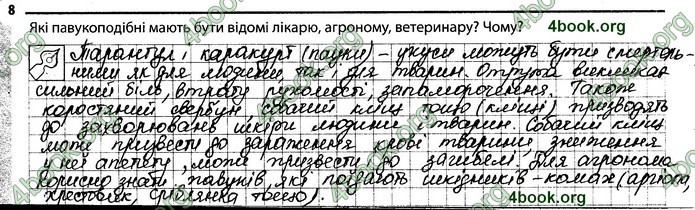 8
Які павукоподібні мають бути відомі лікарю, агроному, ветеринару? Чому?
4book.org
4book.org
Тарантул і каракурт (пауки) – укуси можуть бути смертель-
ними як для людини, так і для тварин. Отрута викликає
сильний біль, втрату рухомості, запаморочення. Також
коростяний свербун, собачий кліщ тощо (кліщі) призводять
до захворювань шкіри людини і тварин. Собачий кліщ
може призвести до зараження крові тварини, зниження
у неї апетиту, може призвести до загибелі. Для агронома
корисно знати павуків, які поїдають шкідників – комах (аргіопа,
хрестовик, сріблянка тощо).
4book.org
4book.org